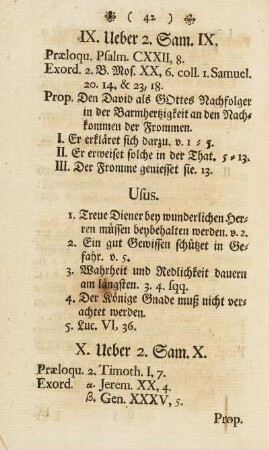 ( 42 )
IX. Ueber 2. Sam. IX.
Præloqu. Psalm. CXXII, 8.
Exord. 2. B. Mos. XX, 6. coll. 1. Samuel.
20. 14, & 23, 18.
Prop. Den David als GOttes Nachfolger
in der Barmhertzigkeit an den Nach-
kommen der Frommen.
I. Er erkläret sich darzu. v. 1 - 5.
II. Er erweiset solche in der That. 5 - 13.
III. Der Fromme geniesset sie. 13.
Usus.
1. Treue Diener bey wunderlichen Her-
ren müssen beybehalten werden. v. 2.
2. Ein gut Gewissen schützet in Ge-
fahr. v. 5.
3. Wahrheit und Redlichkeit dauern
am längsten. 3. 4. sqq.
4. Der Könige Gnade muß nicht ver-
achtet werden.
5. Luc. VI, 36.
X. Ueber 2. Sam. X.
Præloqu. 2. Timoth. I, 7.
Exord. α. Jerem. XX, 4.
β. Gen. XXXV, 5.
Prop.